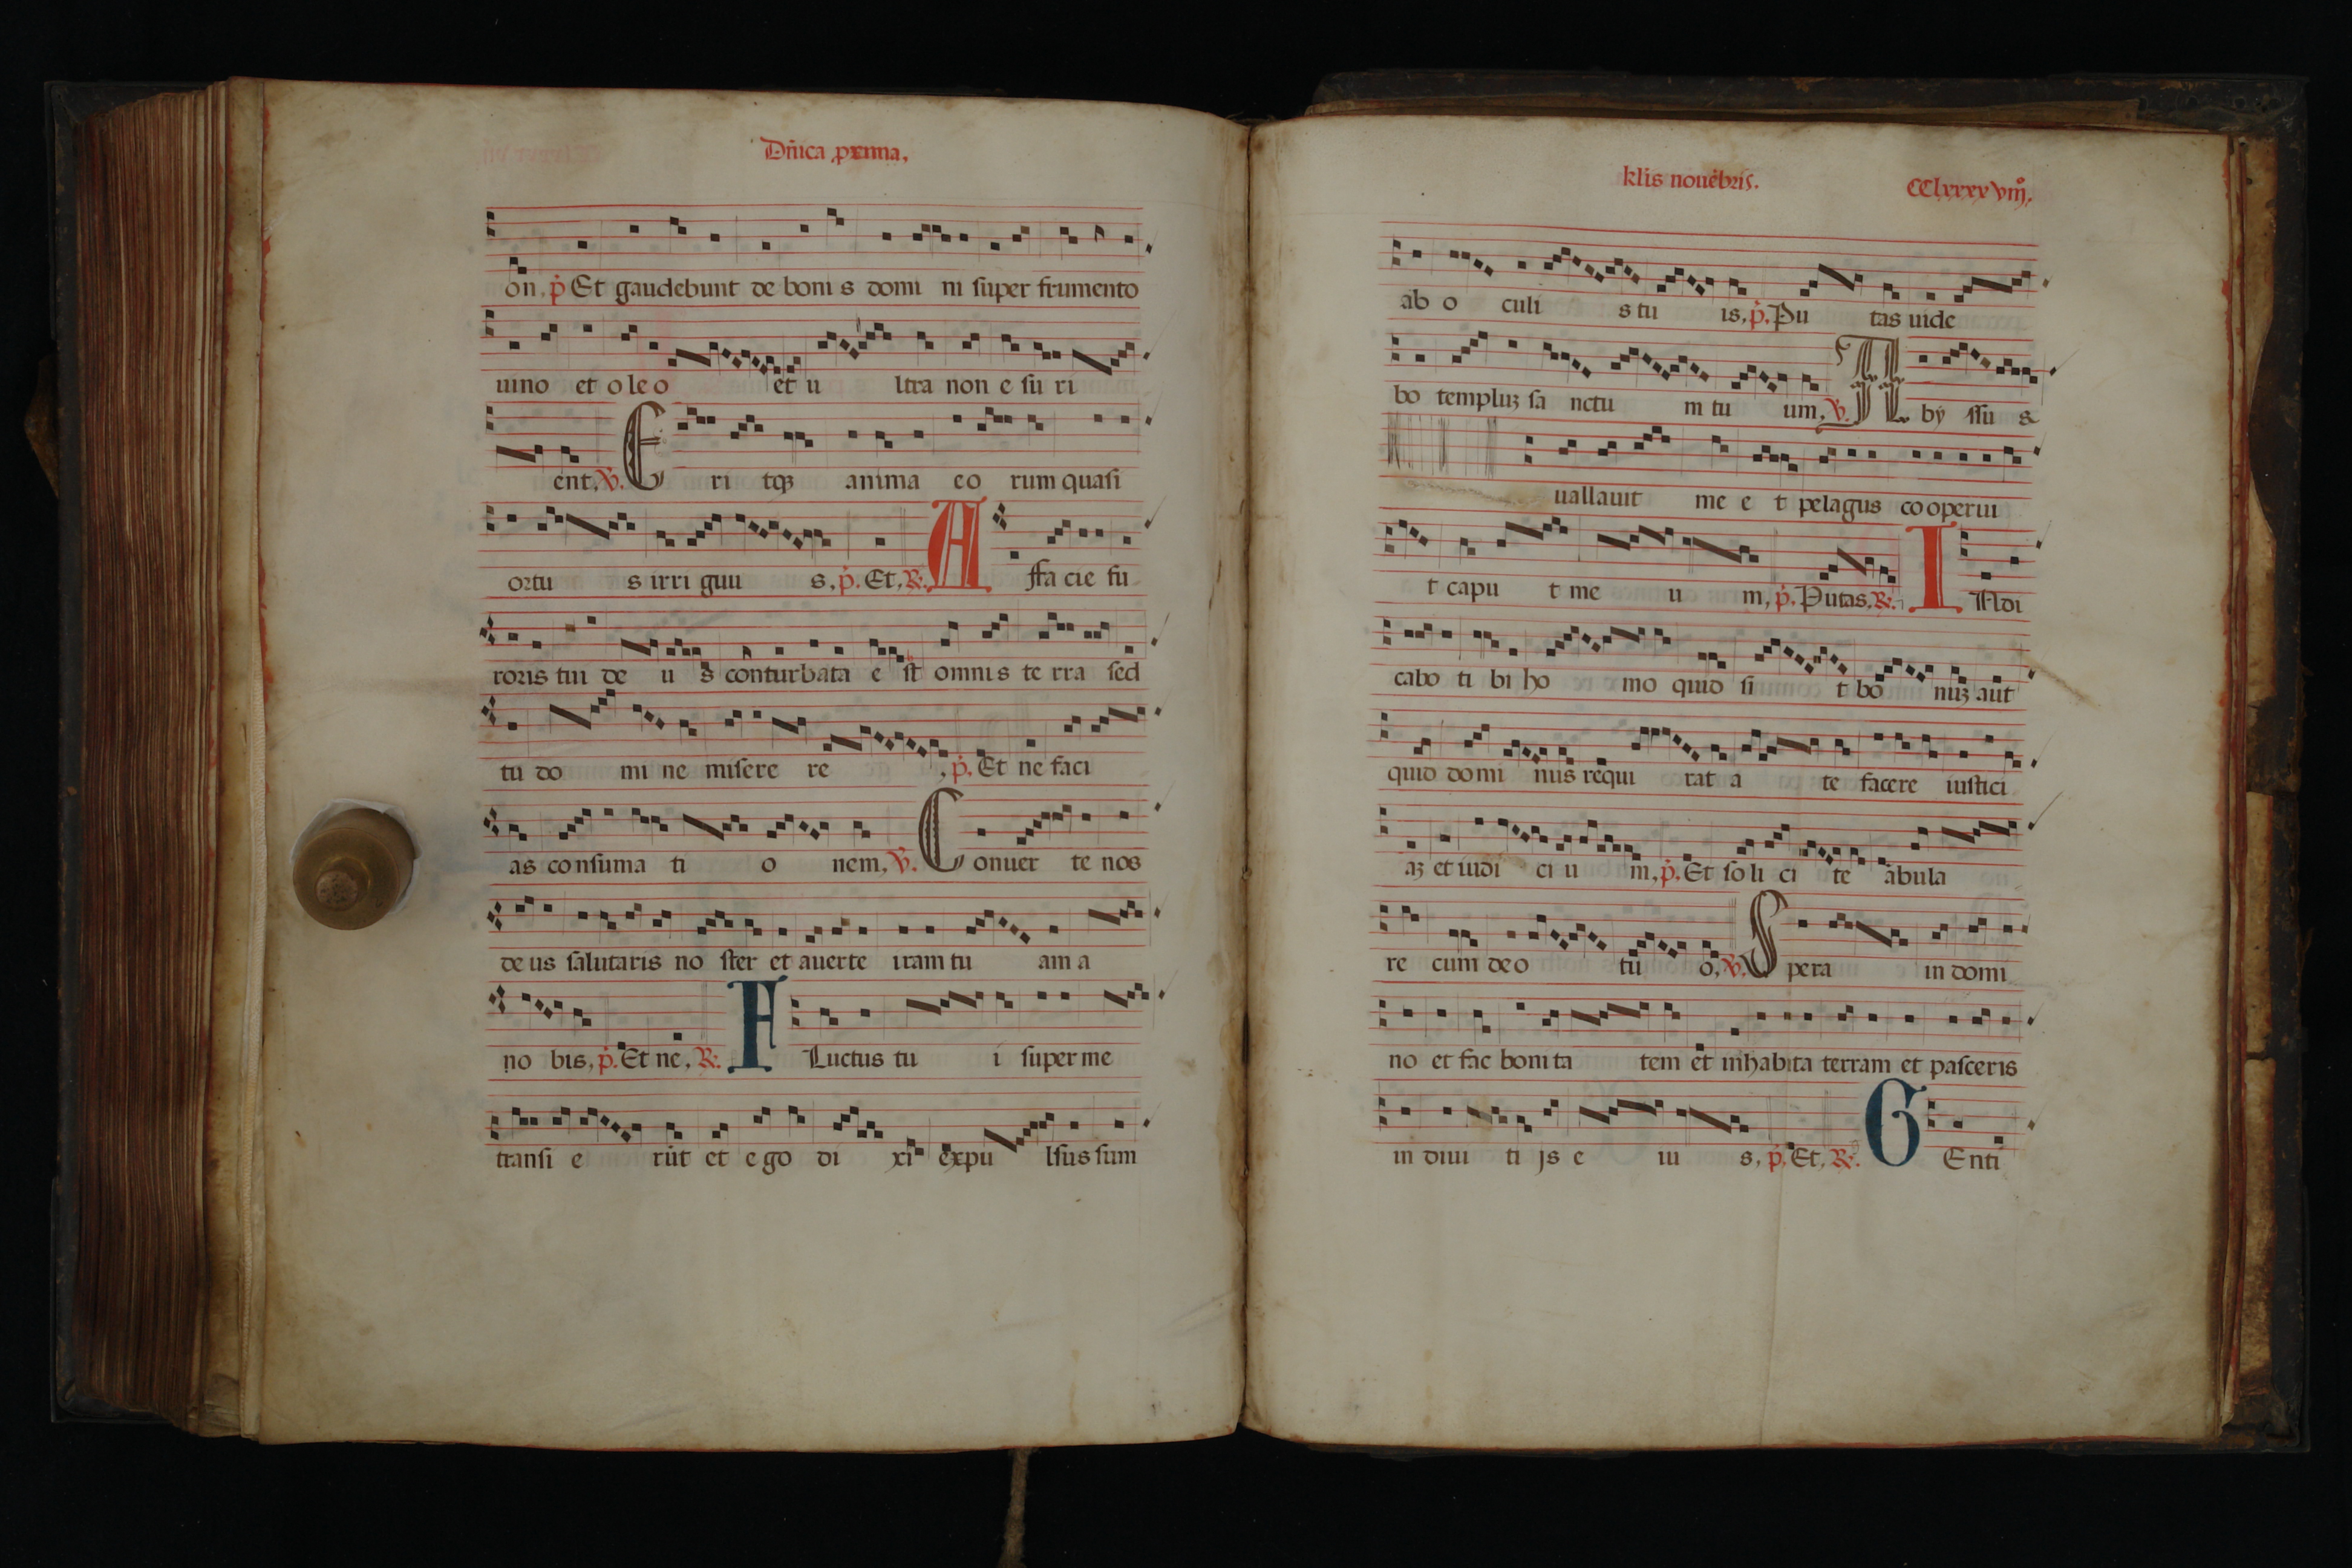 Dn̄ica prima,
on, p̄ Et gaudebunt de boni s domi ni super frumento
uino et o le o et u ltra non e su ri
ent, V. E ri tqȝ anima eo rum quasi
ortu s irri guu s, p̄. Et, R. A Ffa cie fu
roris tui de u s conturbata e st omni s te rra sed
tu do mi ne misere re , p̄. Et ne faci
as consuma ti o nem, V. C onuer te nos
de us salutaris no ster et auerte iram tu am a
no bis, p̄. Et ne, R. F Luctus tu i super me
transi e rūt et e go di xi expu lsus sum
klis nouēbris. CClxxxxviijº,
ab o culi s tu is, p̄. Pu tas uide
bo templuȝ sa nctu m tu um, V. A by ssu s
uallauit me e t pelagus co operui
t capu t me u m, p̄. Putas, R. I Ndi
cabo ti bi ho mo quid si t bo nuȝ aut
quid domi nus requi rat a te facere iustici
aȝ et iudi ci u m, p̄. Et so li ci te ābula
re cum deo tu o, V. S pera in domi
no et fac boni ta tem et inhabita terram et pasceris
in diui ti js e iu s, p̄. Et, R. G Enti